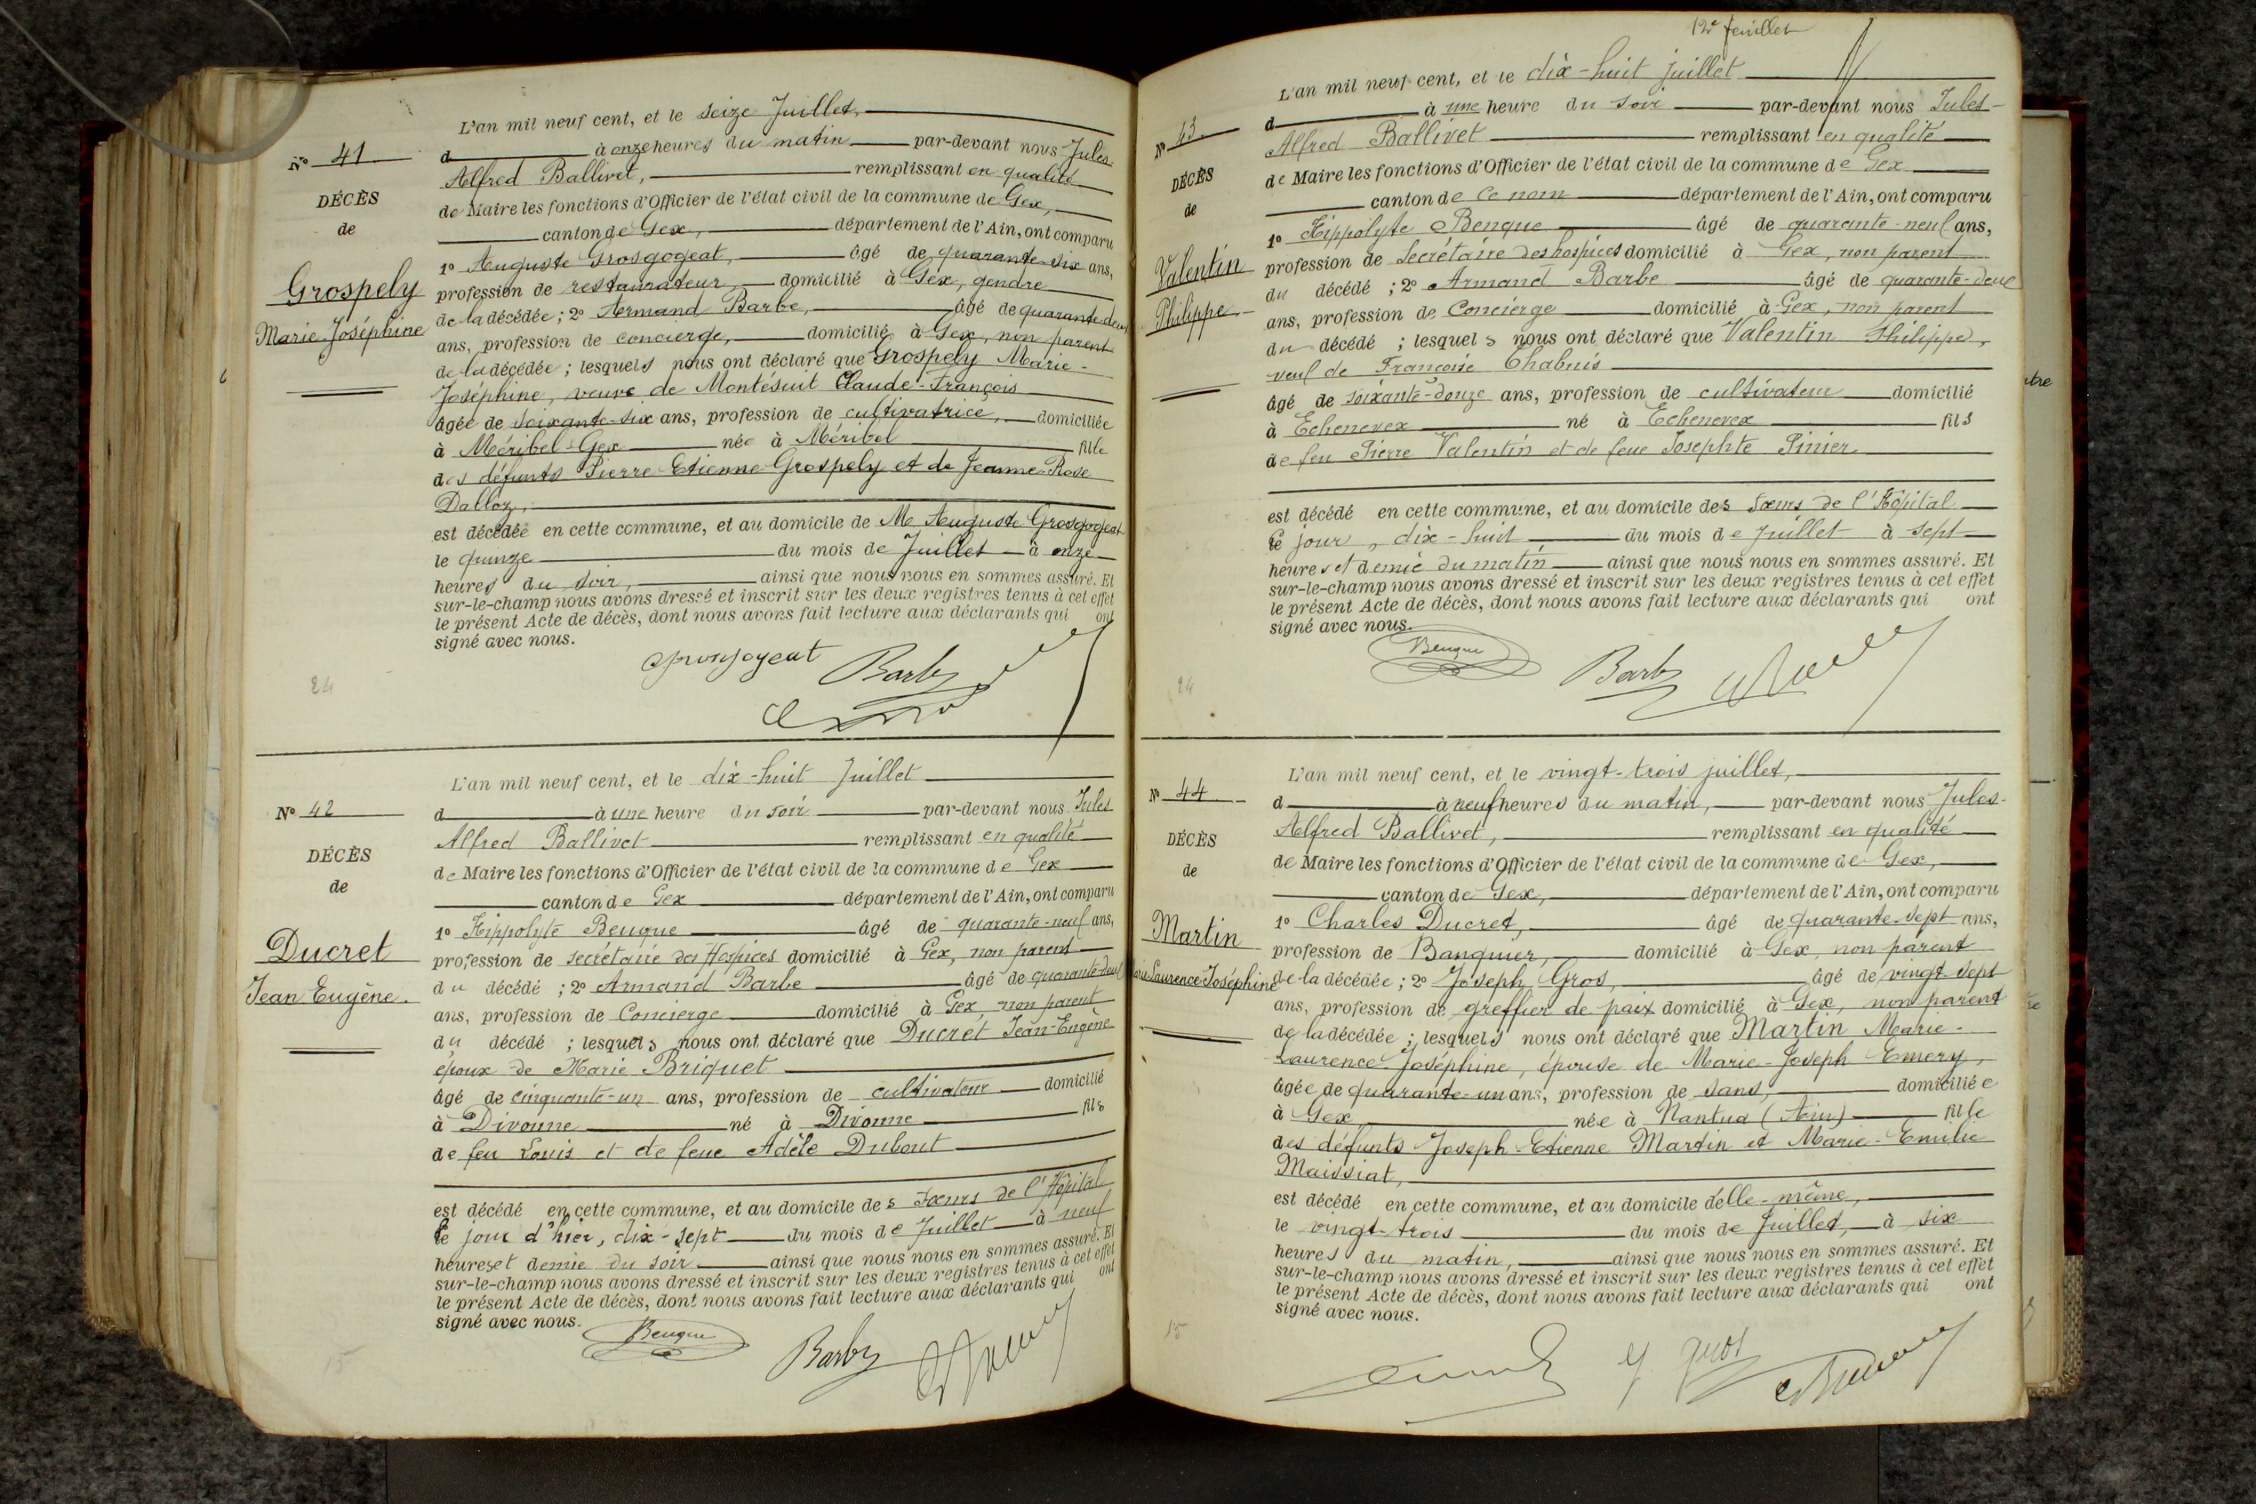 N° 41
DÉCÈS
de
Grospely
Marie-Joséphine
L'an mil neuf cent, et le seize Juillet,
d à onze heures du matin par-devant nous Jules
Alfred Ballivet, remplissant en qualité
de Maire les fonctions d'Officier de l'état civil de la commune de Gex,
canton de Gex, département de l'Ain, ont comparu
1° Auguste Grosgogeat, âgé de quarante-six ans,
profession de restaurateur, domicilié à Gex, gendre
de la décédée ; 2° Armand Barbe, âgé de quarante-deux
ans, profession de concierge, domicilié à Gex, non parent
de la décédée ; lesquels nous ont déclaré que Grospely Marie-
Joséphine, veuve de Montésuit Claude-François
âgée de soixante-six ans, profession de cultivatrice, domiciliée
à Méribel-Gex née à Méribel fille
des défunts Pierre-Etienne Grospely et de Jeanne-Rose
Dalloz,
est décédée en cette commune, et au domicile de M. Auguste Grosgogeat
le quinze du mois de Juillet à onze
heures du soir, ainsi que nous nous en sommes assuré. Et
sur-le-champ nous avons dressé et inscrit sur les deux registres tenus à cet effet
le présent Acte de décès, dont nous avons fait lecture aux déclarants qui ont
signé avec nous.
Grosgogeat Barbe
24
N° 42
DÉCÈS
de
Ducret
Jean Eugène.
L'an mil neuf cent, et le dix-huit Juillet
d à une heure du soir par-devant nous Jules
Alfred Ballivet remplissant en qualité
de Maire les fonctions d'Officier de l'état civil de la commune de Gex
canton de Gex département de l'Ain, ont comparu
1° Hippolyte Benque âgé de quarante-neuf ans,
profession de secrétaire des Hospices domicilié à Gex, non parent
du décédé ; 2° Armand Barbe âgé de quarante-deux
ans, profession de Concierge domicilié à Gex, non parent
du décédé ; lesquels nous ont déclaré que Ducret Jean-Eugène
époux de Marie Briquet
âgé de cinquante-un ans, profession de cultivateur domicilié
à Divonne né à Divonne fils
de feu Louis et de feue Adèle Dubout
est décédé en cette commune, et au domicile des sœurs de l'Hôpital
le jour d'hier, dix-sept du mois de Juillet à neuf
heures et demie du soir ainsi que nous nous en sommes assuré. Et
sur-le-champ nous avons dressé et inscrit sur les deux registres tenus à cet effet
le présent Acte de décès, dont nous avons fait lecture aux déclarants qui ont
signé avec nous.
Benque Barbe
15
12e feuillet
N° 43
DÉCÈS
de
Valentin
Philippe
L'an mil neuf cent, et le dix-huit juillet
d à une heure du soir par-devant nous Jules-
Alfred Ballivet remplissant en qualité
de Maire les fonctions d'Officier de l'état civil de la commune de Gex
canton de ce nom département de l'Ain, ont comparu
1° Hippolyte Benque âgé de quarante-neuf ans,
profession de Secrétaire des hospices domicilié à Gex, non parent
du décédé ; 2° Armand Barbe âgé de quarante-deux
ans, profession de Concierge domicilié à Gex, non parent
du décédé ; lesquels nous ont déclaré que Valentin Philippe,
veuf de Françoise Chabuis
âgé de soixante-douze ans, profession de cultivateur domicilié
à Echenevex né à Echenevex fils
de feu Pierre Valentin et de feue Josephte Pinier.
est décédé en cette commune, et au domicile des Sœurs de l'Hôpital
ce jour, dix-huit du mois de Juillet à sept
heures et demie du matin ainsi que nous nous en sommes assuré. Et
sur-le-champ nous avons dressé et inscrit sur les deux registres tenus à cet effet
le présent Acte de décès, dont nous avons fait lecture aux déclarants qui ont
signé avec nous.
Benque Barbe
24
N° 44
DÉCÈS
de
Martin
Marie-Laurence-Joséphine
L'an mil neuf cent, et le vingt-trois juillet,
d à neuf heures du matin, par-devant nous Jules-
Alfred Ballivet, remplissant en qualité
de Maire les fonctions d'Officier de l'état civil de la commune de Gex,
canton de Gex, département de l'Ain, ont comparu
1° Charles Ducret, âgé de quarante-sept ans,
profession de Banquier, domicilié à Gex, non parent
de la décédée ; 2° Joseph Gros, âgé de vingt-sept
ans, profession de greffier de paix domicilié à Gex, non parent
de la décédée ; lesquels nous ont déclaré que Martin Marie-
Laurence-Joséphine, épouse de Marie-Joseph Emery,
âgée de quarante-un ans, profession de sans, domiciliée
à Gex née à Nantua (Ain) fille
des défunts Joseph-Etienne Martin et Marie-Emilie
Maissiat,
est décédé en cette commune, et au domicile d'elle-même,
le vingt-trois du mois de Juillet, à six
heures du matin, ainsi que nous nous en sommes assuré. Et
sur-le-champ nous avons dressé et inscrit sur les deux registres tenus à cet effet
le présent Acte de décès, dont nous avons fait lecture aux déclarants qui ont
signé avec nous.
J Gros
15